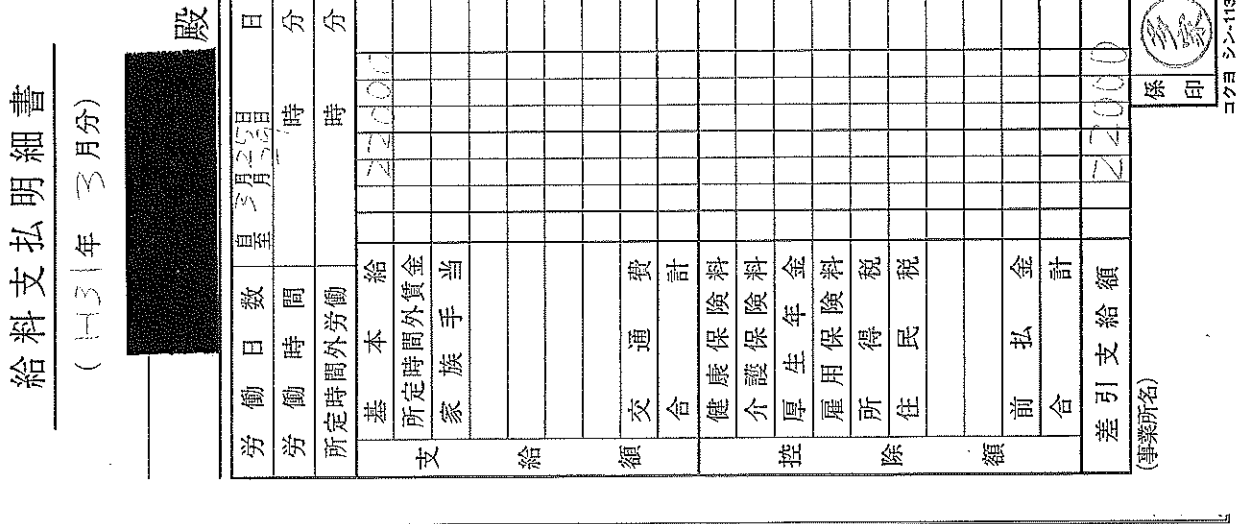 給料支払明細書
(H31年 3月分)
殿
労働日数 自 3月25日 至 月 日 日
労働時間 時 分
所定時間外労働 時 分
支給額
基本給 22000
所定時間外賃金
家族手当
交通費
合計
控除額
健康保険料
介護保険料
厚生年金
雇用保険料
所得税
住民税
前払金
合計
差引支給額 22000
(事業所名)
係印
コクヨ シン-113